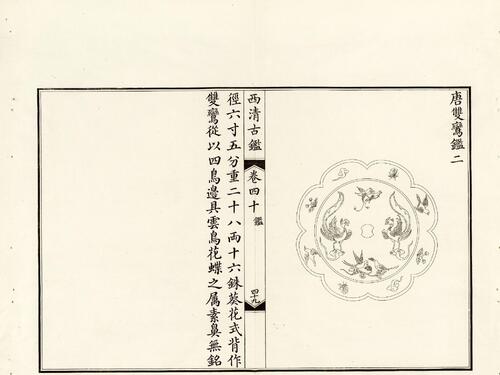 唐雙鸞鑑二
西清古鑑
卷四十 鑑
四十九
徑六寸五分重二十八兩十六銖葵花式背作
雙鸞從以四鳥邊具雲鳥花蝶之屬素鼻無銘